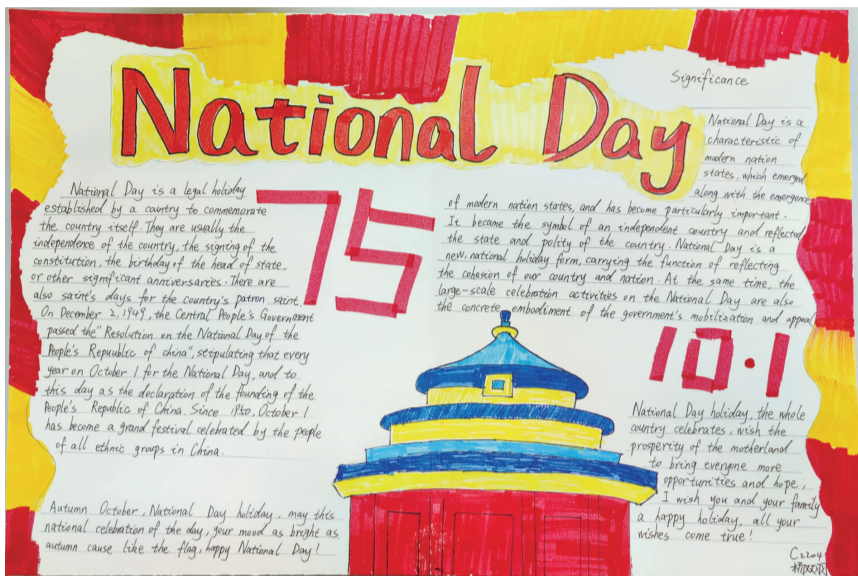 National Day
Significance
National Day is a legal holiday
established by a country to commemorate
the country itself. They are usually the
independence of the country, the signing of the
constitution, the birthday of the head of state,
or other significant anniversaries. There are
also saint's days for the country's patron saint.
On December 2, 1949, the Central People's Government
passed the "Resolution on the National Day of the
People's Repuublic of china", stipulating that every
year on October 1 for the National Day, and to
this day as the declaration of the founding of the
People's Republic of China. Since 1950, October 1
has become a grand festival celebrated by the people
of all ethnic groups in China.
Autumn October, National Day holiday, may this
national celebration of the day, your mood as bright as
autumn cause like the flag, happy National Day!
75
National Day is a
characteristic of
modern nation
states, which emerged
along with the emergence
of modern nation states, and has become particularly important.
It became the symbol of an independent country and reflected
the state and polity of the country. National Day is a
new, national holiday form, carrying the function of reflecting
the cohesion of our country and nation. At the same time, the
large-scale celebration activities on the National Day are also
the concrete embodiment of the government's mobilization and appeal
10·1
National Day holiday, the whole
country celebrates, wish the
prosperity of the motherland
to bring everyone more
opportunities and hope,
I wish you and your family
a happy holiday, all your
wishes come true!
C2204